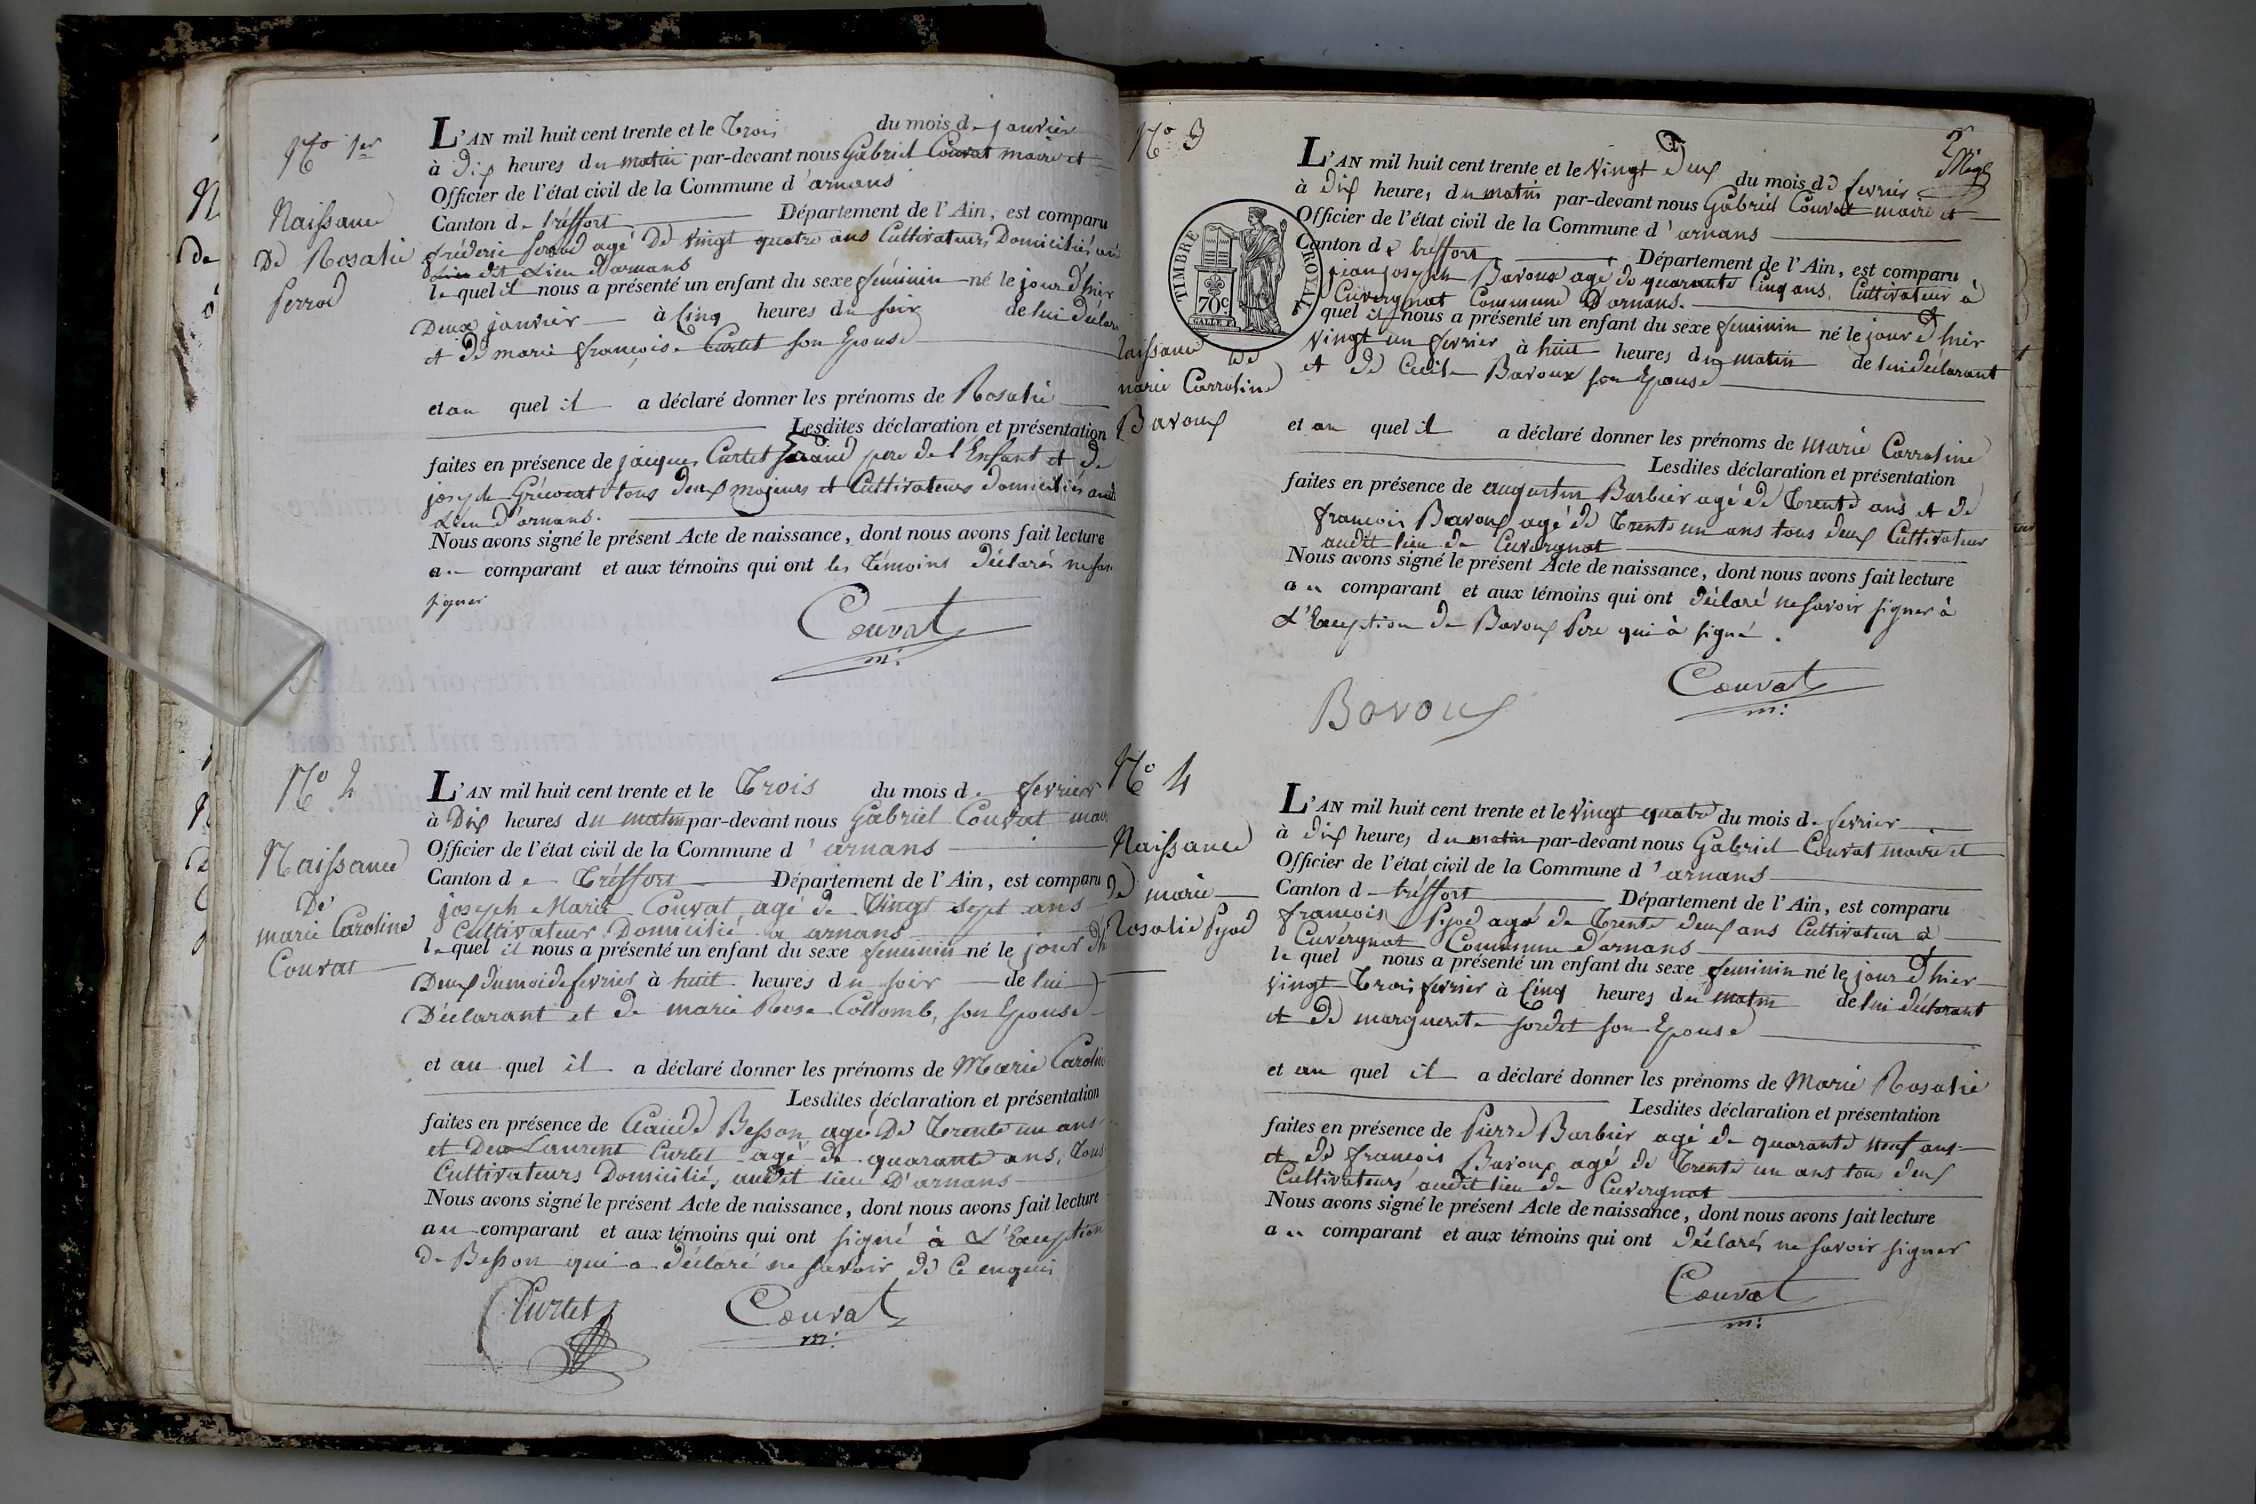 No 1er
Naissance
De Rosalie
Perrod
L'AN mil huit cent trente et le Trois du mois de janvier
à Dix heures du matin par-devant nous Gabriel Couvat maire et
Officier de l'état civil de la Commune d'arnans
Canton de tréffort Département de l'Ain, est comparu
fréderic perrod agé De vingt quatre ans Cultivateurs Domiciliés
dit Lieu d'arnans
lequel il nous a présenté un enfant du sexe féminin né le jour d'hier
Deux janvier à Cinq heures du soir de lui
et De marie françoise Curtet son Epouse
et au quel il a déclaré donner les prénoms de Rosalie
Lesdites déclaration et présentation
faites en présence de jacques Curtet Grand pere de l'Enfant et de
joseph tous deux majeurs et Cultivateurs domiciliés
Lieu d'arnans.
Nous avons signé le présent Acte de naissance, dont nous avons fait lecture
au comparant et aux témoins qui ont les Témoins Déclarés ne
signer
Couvat
m:
No 2
Naissance
De
marie Caroline
Couvat
L'AN mil huit cent trente et le Trois du mois de fevrier
à Dix heures du matin par-devant nous Gabriel Couvat
Officier de l'état civil de la Commune d'arnans
Canton de Tréffort Département de l'Ain, est comparu
joseph Marie Couvat agé de Vingt sept ans
Cultivateur Domicilié a arnans
lequel il nous a présenté un enfant du sexe feminin né le jour
Deux du moi de fevrier à huit heures du soir de lui
Déclarant et de marie Rose Collomb, son Epouse
et au quel il a déclaré donner les prénoms de Marie Caroline
Lesdites déclaration et présentation
faites en présence de Claude Besson agé De Trente un ans
et De Laurent Curtet agé de quarante ans, Tous
Cultivateurs Domiciliés audit lieu D'arnans
Nous avons signé le présent Acte de naissance, dont nous avons fait lecture
au comparant et aux témoins qui ont signé à L'Exception
de Besson qui a déclaré ne savoir de Ce enquis
Curtet Couvat
m:
2
No 3
TIMBRE ROYAL
70c
Naissance
de
marie Carroline
Bavoux
L'AN mil huit cent trente et le Vingt deux du mois de fevrier
à dix heures du matin par-devant nous Gabriel Couvat maire et
Officier de l'état civil de la Commune d'arnans
Canton de treffort Département de l'Ain, est comparu
jean joseph Bavoux agé de quarante Cinq ans, Cultivateur à
Cuvergnat Commune D'arnans.
quel il nous a présenté un enfant du sexe feminin né le jour d'hier
Vingt un fevrier à huit heures du matin de lui déclarant
et de Cecile Bavoux son Epouse
et au quel il a déclaré donner les prénoms de marie Carroline
Lesdites déclaration et présentation
faites en présence de augustin Barbier agé de Trente ans et de
francois Bavoux agé de Trente un ans tous deux Cultivateur
audit lieu de Cuvergnat
Nous avons signé le présent Acte de naissance, dont nous avons fait lecture
au comparant et aux témoins qui ont déclaré ne savoir signer à
L'Exception de Bavoux Pere qui à signé.
Couvat
m:
Bavoux
No 4
Naissance
de marie
Rosalie Pyod
L'AN mil huit cent trente et le Vingt quatre du mois de fevrier
à dix heures du matin par-devant nous Gabriel Couvat maire et
Officier de l'état civil de la Commune d'arnans
Canton de tréffort Département de l'Ain, est comparu
francois Pyod agé de Trente deux ans Cultivateur à
Cuvergnat Commune d'arnans
le quel nous a présenté un enfant du sexe feminin né le jour d'hier
Vingt Trois fevrier à Cinq heures du matin de lui déclarant
et de marguerite sordet son Epouse
et au quel il a déclaré donner les prénoms de Marie Rosalie
Lesdites déclaration et présentation
faites en présence de Pierre Barbier agé de quarante neuf ans
et de francois Bavoux agé de Trente un ans tous deux
Cultivateurs audit lieu de Cuvergnat
Nous avons signé le présent Acte de naissance, dont nous avons fait lecture
au comparant et aux témoins qui ont déclarés ne savoir signer
Couvat
m: